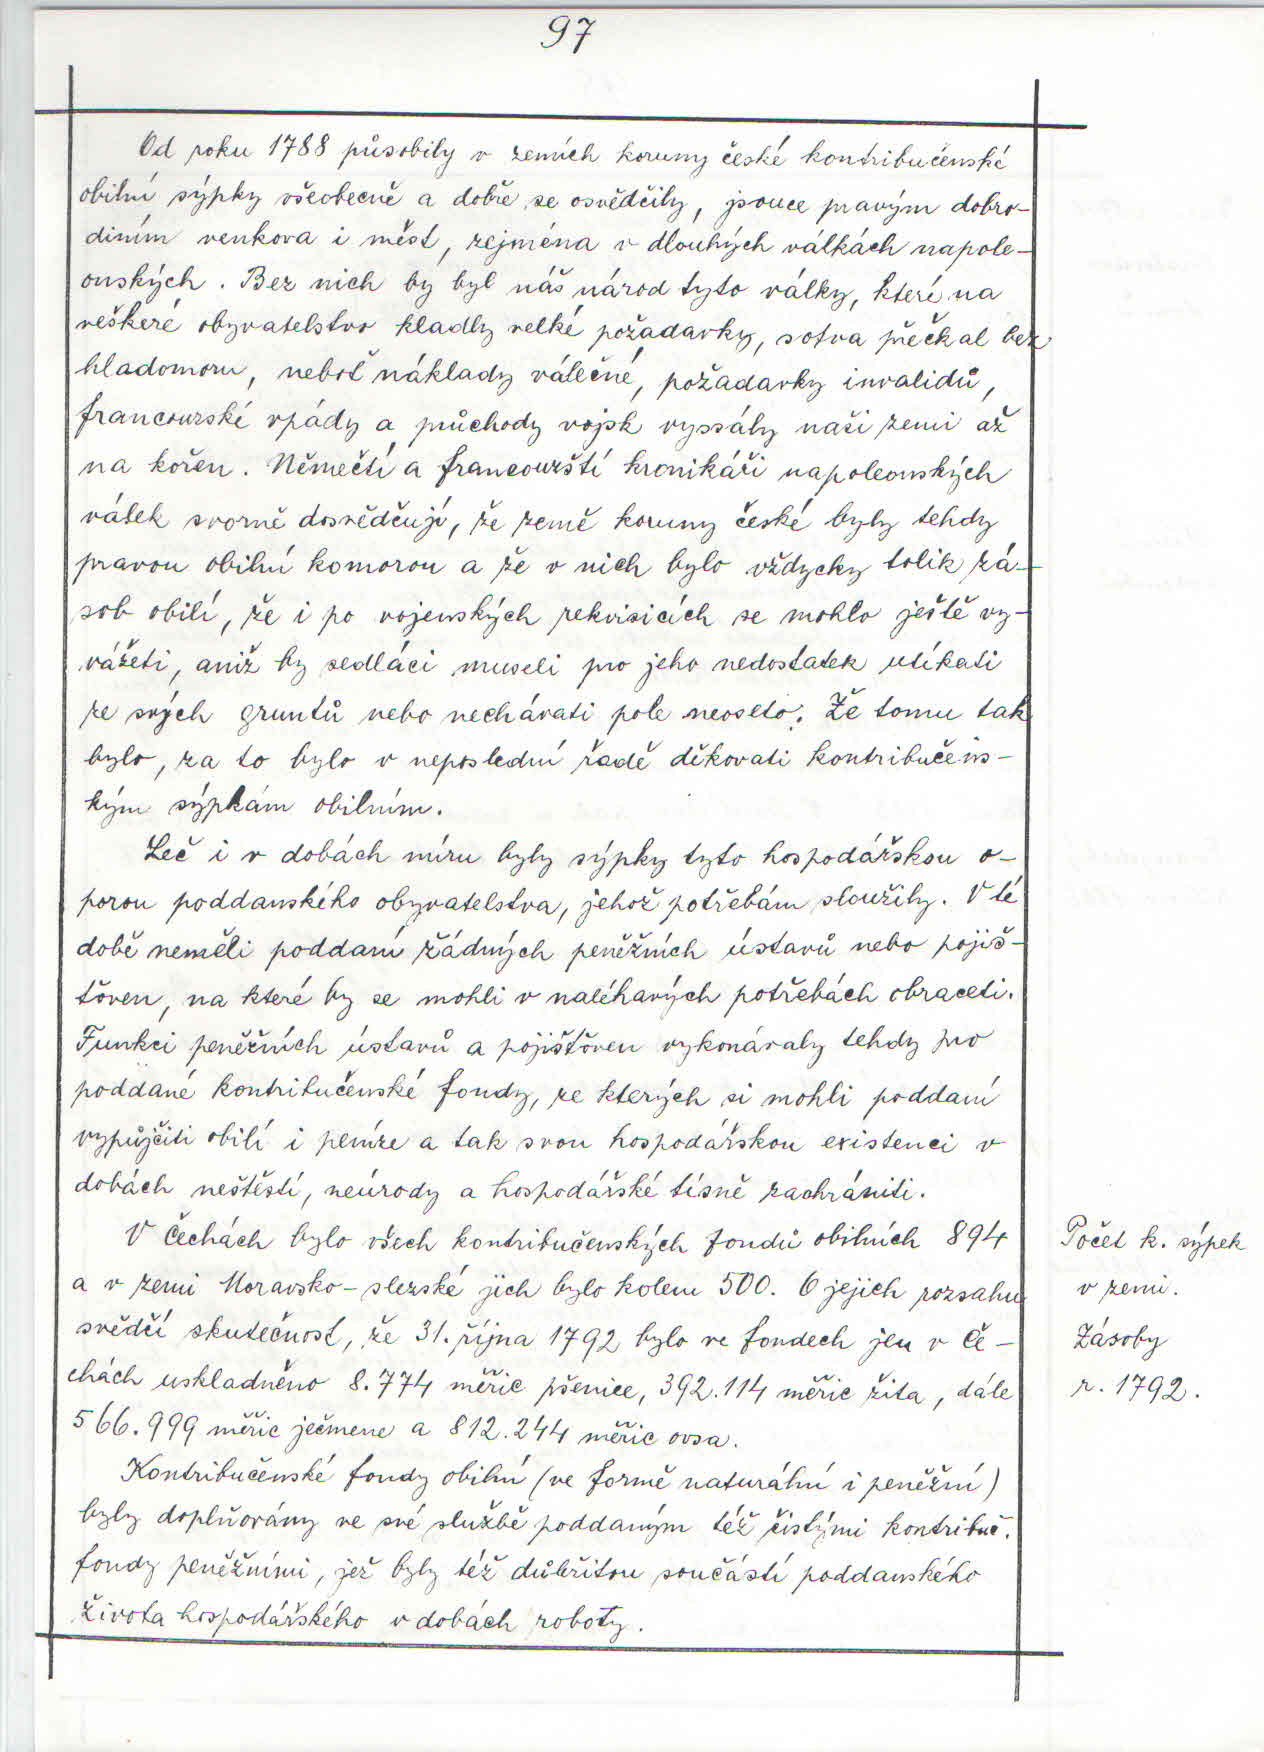 97
Od roku 1788 působily v zemích koruny české kontribučenské
obilní sýpky všeobecně a dobře se osvědčily, jsouce pravým dobro-
diním venkova i měst, zejména v dlouhých válkách napole-
onských. Bez nich by byl náš národ tyto války, které na
veškeré obyvatelstvo kladly velké požadavky, sotva přečkal bez
hladomoru, neboť náklady válečné, požadavky invalidů,
francouzské vpády a průchody vojsk vyssály naši zemi až
na kořen. Němečtí a francouzští kronikáři napoleonských
válek svorně dosvědčují, že země koruny české byly tehdy
pravou obilní komorou a že v nich bylo vždycky tolik zá-
sob obilí, že i po vojenských rekvisicích se mohlo ještě vy-
vážeti, aniž by sedláci museli pro jeho nedostatek utíkati
ze svých gruntů nebo nechávati pole neoseto. Že tomu tak
bylo, za to bylo v neposlední řadě děkovati kontribučens-
kým sýpkám obilním.
Leč i v dobách míru byly sýpky tyto hospodářskou o-
porou poddanského obyvatelstva, jehož potřebám sloužily. V té
době neměli poddaní žádných peněžních ústavů nebo pojiš-
ťoven, na které by se mohli v naléhavých potřebách obraceti.
Funkci peněžních ústavů a pojišťoven vykonávaly tehdy pro
poddané kontribučenské fondy, ze kterých si mohli poddaní
vypůjčiti obilí i peníze a tak svou hospodářskou existenci v
dobách neštěstí, neúrody a hospodářské tísně zachrániti.
V Čechách bylo všech kontribučenských fondů obilních 894
a v zemi Moravsko-slezské jich bylo kolem 500. O jejich rozsahu
svědčí skutečnost, že 31. října 1792 bylo ve fondech jen v Če-
chách uskladněno 8.774 měřic pšenice, 392.114 měřic žita, dále
566.999 měřic ječmene a 812.244 měřic ovsa.
Kontribučenské fondy obilní (ve formě naturální i peněžní)
byly doplňovány ve své službě poddaným též čistými kontribuč.
fondy peněžními, jež byly též důležitou součástí poddanského
života hospodářského v dobách roboty.
Počet k. sýpek
v zemi.
Zásoby
r. 1792.